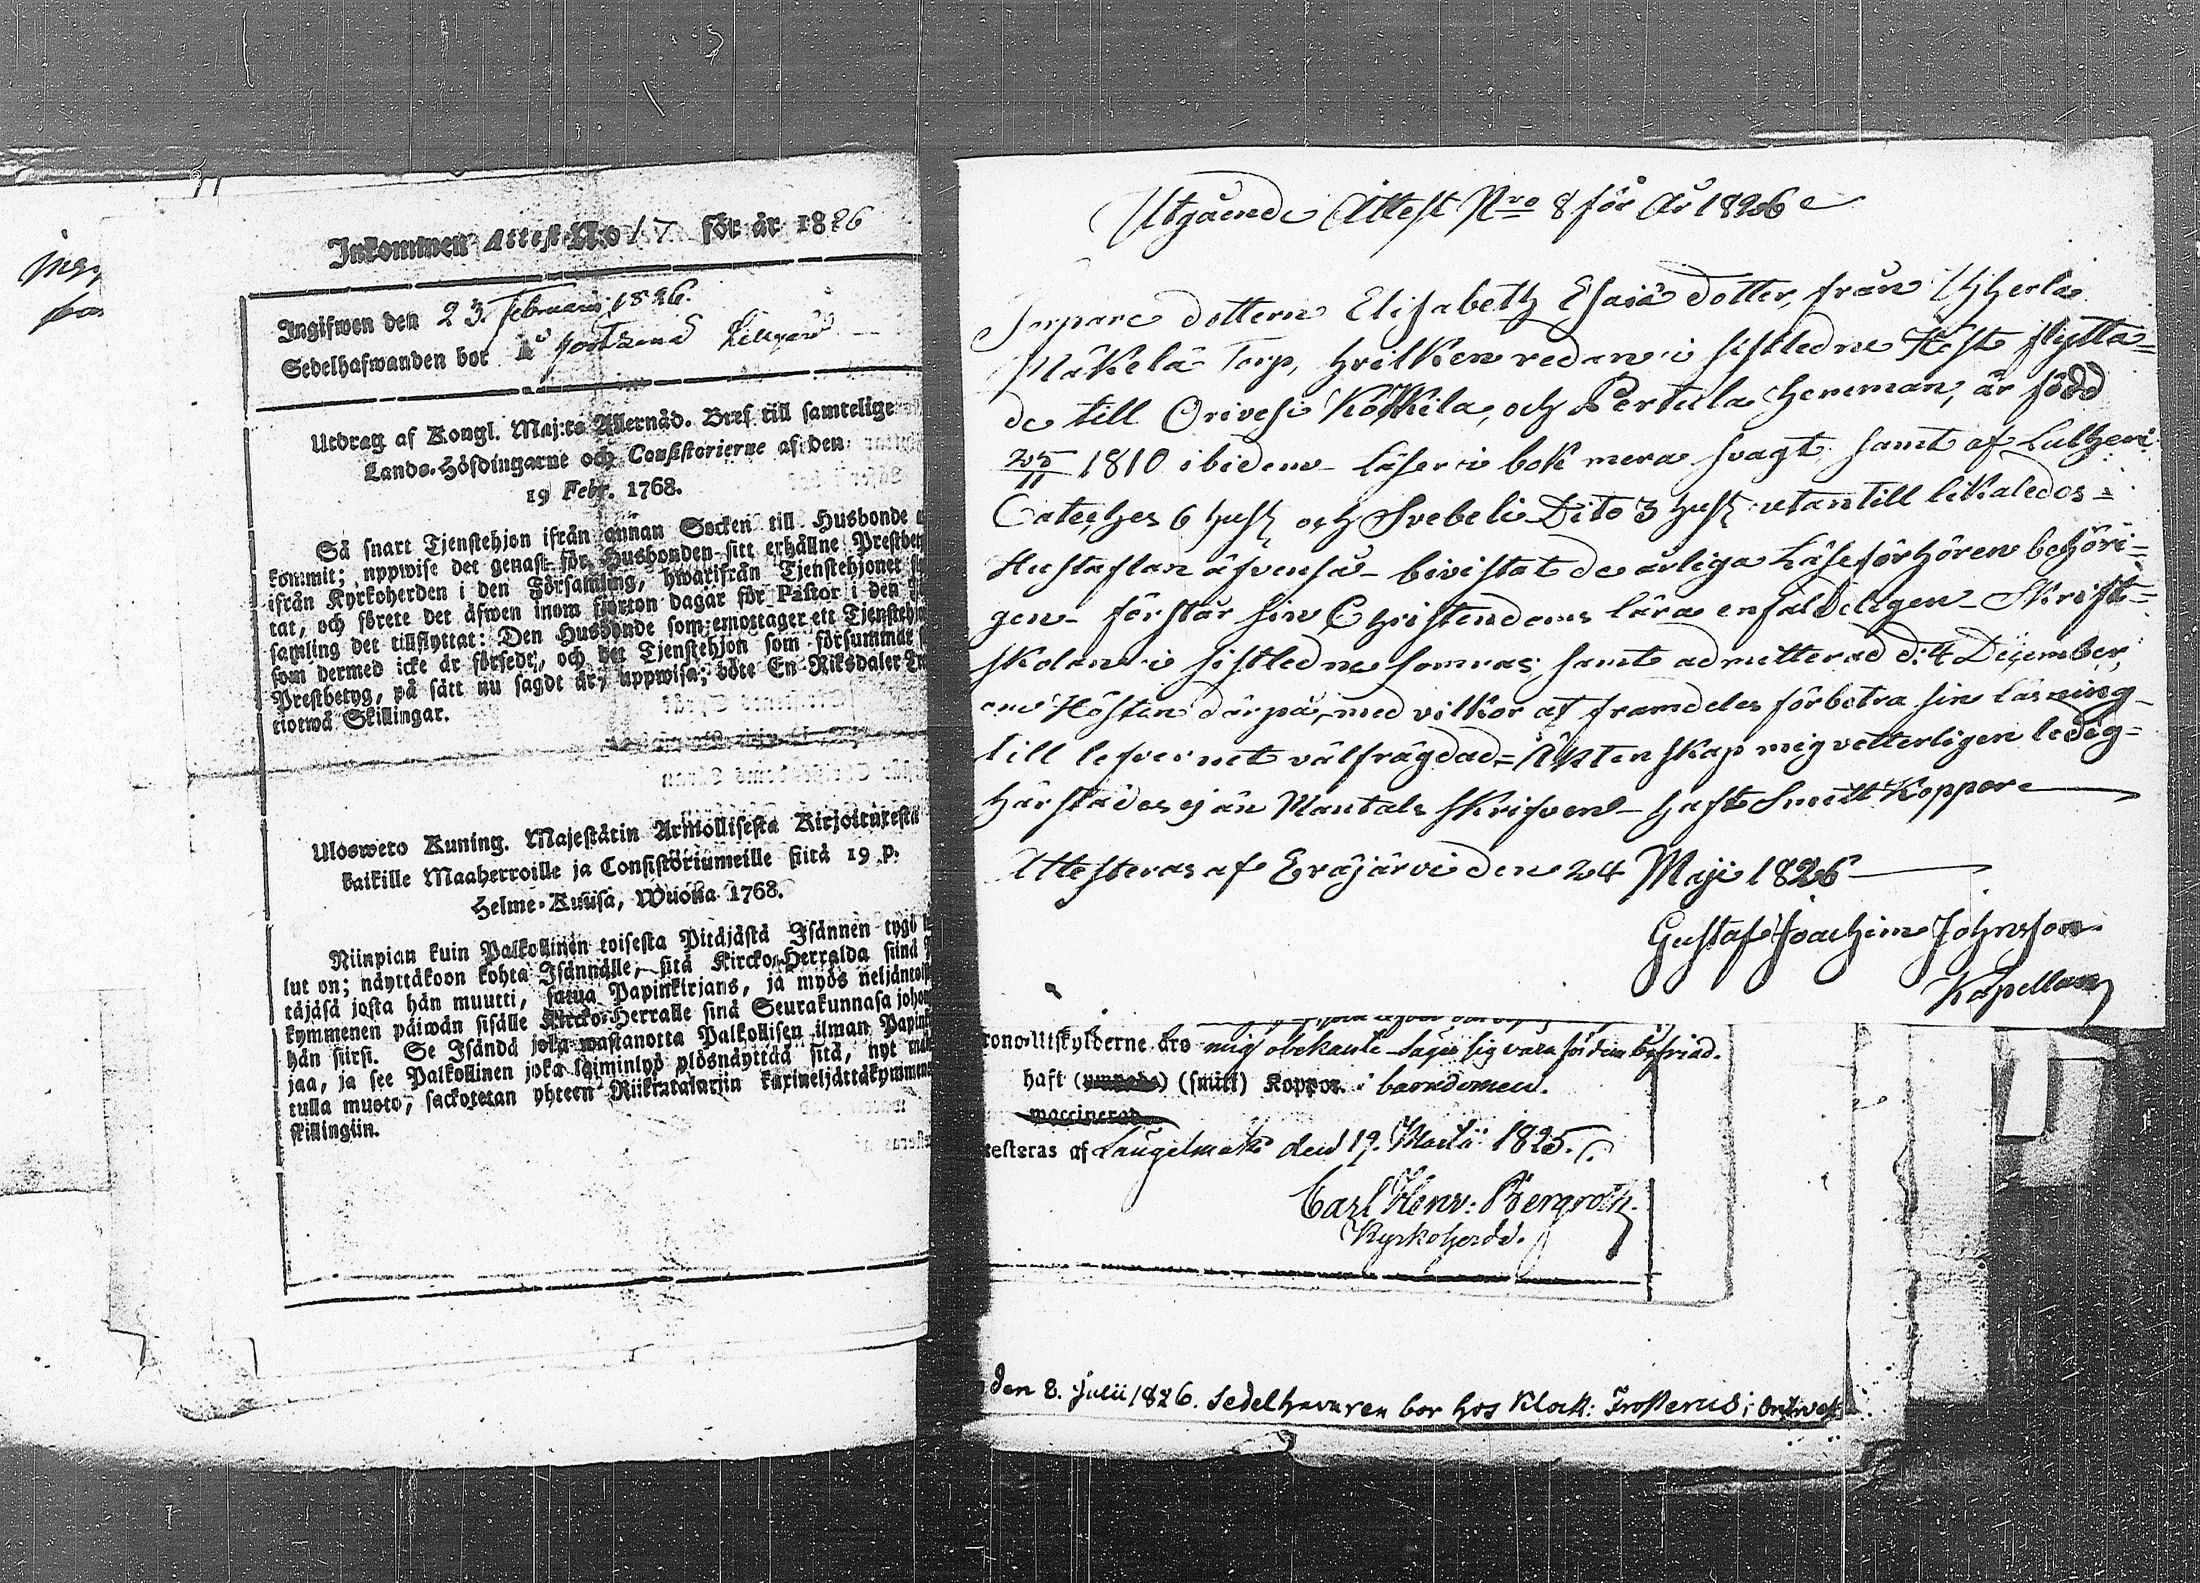 Inkommen Attest No 17 för år 1826
Ingifwen den 23. Februarii 1826.
Sedelhafwanden bor
Utdrag af Kongl. Maj:ts Allernåd. Bref till samtelige
Lands-Höfdingarne och Consistorierne af den
19 Febr. 1768.
Så snart Tjenstehjon ifrån annan Socken till Husbonde
kommit; uppwise det genast för Husbonden sitt erhållne Prestbe
ifrån Kyrkoherden i den Församling, hwarifrån Tjenstehjonet
tat, och förete det äfwen inom fjorton dagar för Pastor i den
samling det tillflyttat: Den Husbonde som emottager ett Tjenstehjo
som dermed icke är försedt, och det Tjenstehjon som försummar
Prestbetyg, på sätt nu sagdt är, uppwisa; böte En Riksdaler
tiotwå Skillingar.
Ulosweto Kuning. Majestätin Armollisesta Kirjoituxesta
kaikille Maaherroille ja Consistoriumeille siitä 19 p.
Helme-Kuusa, Wuonna 1768.
Niinpian kuin Palkollinen toisesta Pitäjästä Isännen tygö
lut on; näyttäköön kohta Isännälle, sitä Kircko-Herralda siinä
täjäsä josta hän muutti, saatua Papinkirjans, ja myös neljäntoi
kymmenen päiwän sisälle Kircko-Herralle sinä Seurakunnasa joho
hän siirsi. Se Isändä joka wastanotta Palkollisen ilman Papin
jaa, ja see Palkollinen joka laiminlyö ylösnäyttää sitä, nyt
tulla muoto, sackotetan yhteen Riikintalariin kaxineljättäkymmen
skillingiin.
Utgående Attest Nro 8 för År 1826
Inpare dottern Elisabeth Esaiæ dotter, från Uhherla
Mäkelä Torp, hvilken redan i sistledne Höst flytta=
de till Orivesi Kokkila, och Pertula hemman, är född
25/11 1810 ibidem - läser i bok mera svagt samt af Lutheri
Cateches 6 hufs och Svebeli Dito 3 hufs utantill likaledes =
Hustaflan äfvenså - bevistat de årliga Läseförhören behöri=
gen - förstår sin Christendoms lära enfaldeligen - Skrift=
skolan i sistledne somras samt admitterad d: 4 December
om Hösten därpå, med vilkor at framdeles förbetra sin läsning -
till lefvernet välfrägdad = Ägtenskap mig vetterligen ledig =
härstädes ej än Mantals skrifven - haft Smitt Koppor
Attesteras af Eräjärvi den 24 Maji 1826
Gustaf Joachim Johnsson
Kapellan
Krono-Utskylderne äro mig obekante säger sig vara för dem befriad.
haft (smitt) Koppor i barndomen.
vaccinerad
testeras af Längelmäki den 19. Martii 1825.
Carl Henr: Bergroth
Kyrkoherde.
den 8. Julii 1826. Sedelhavaren bor hos Klock: Trosterus i Orivesi